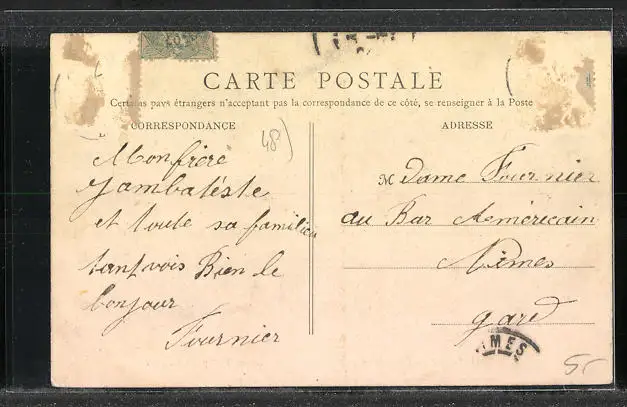 CARTE POSTALE
Certains pays étrangers n'acceptant pas la correspondance de ce côté, se renseigner à la Poste
CORRESPONDANCE
487
Monfrere
Jambatéste
et toute sa familieu
tanvois Bien le
bonjour
Fournier
ADRESSE
M Dame Fournier
au Bar Aeméricain
Nimes
gard
IMES
5-